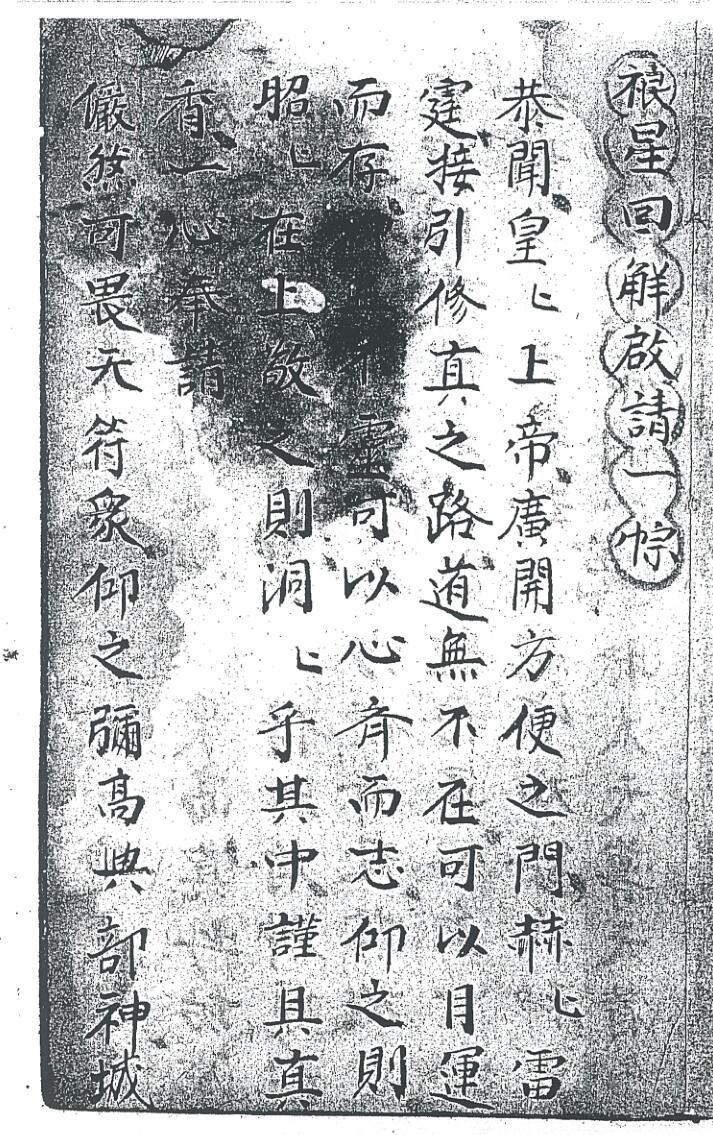 星回觧啟請一
恭聞皇〻上帝廣開方便之門赫〻雷
霆接引修真之路道無不在可以目運
而存不靈可以心齊而志仰之則
昭〻在上敬之則洞〻乎其中謹具真
香一心奉請
儼然可畏天符眾仰之彌高典部神城